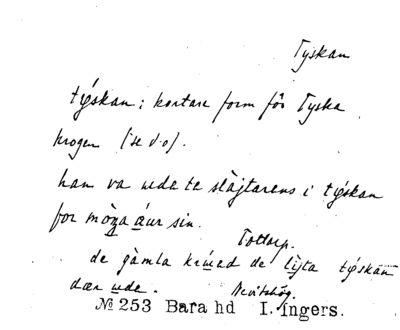 Tyskan
týskan: kortare form för Tyska
krogen (se d.o).
han va uda te slàjtarens i týskan
for mòŋa áur sin.
Tottarp.
de gàmla krúed de lìsta týskan
dær uda.
Nevitshög.
№ 253 Bara hd I. Ingers.